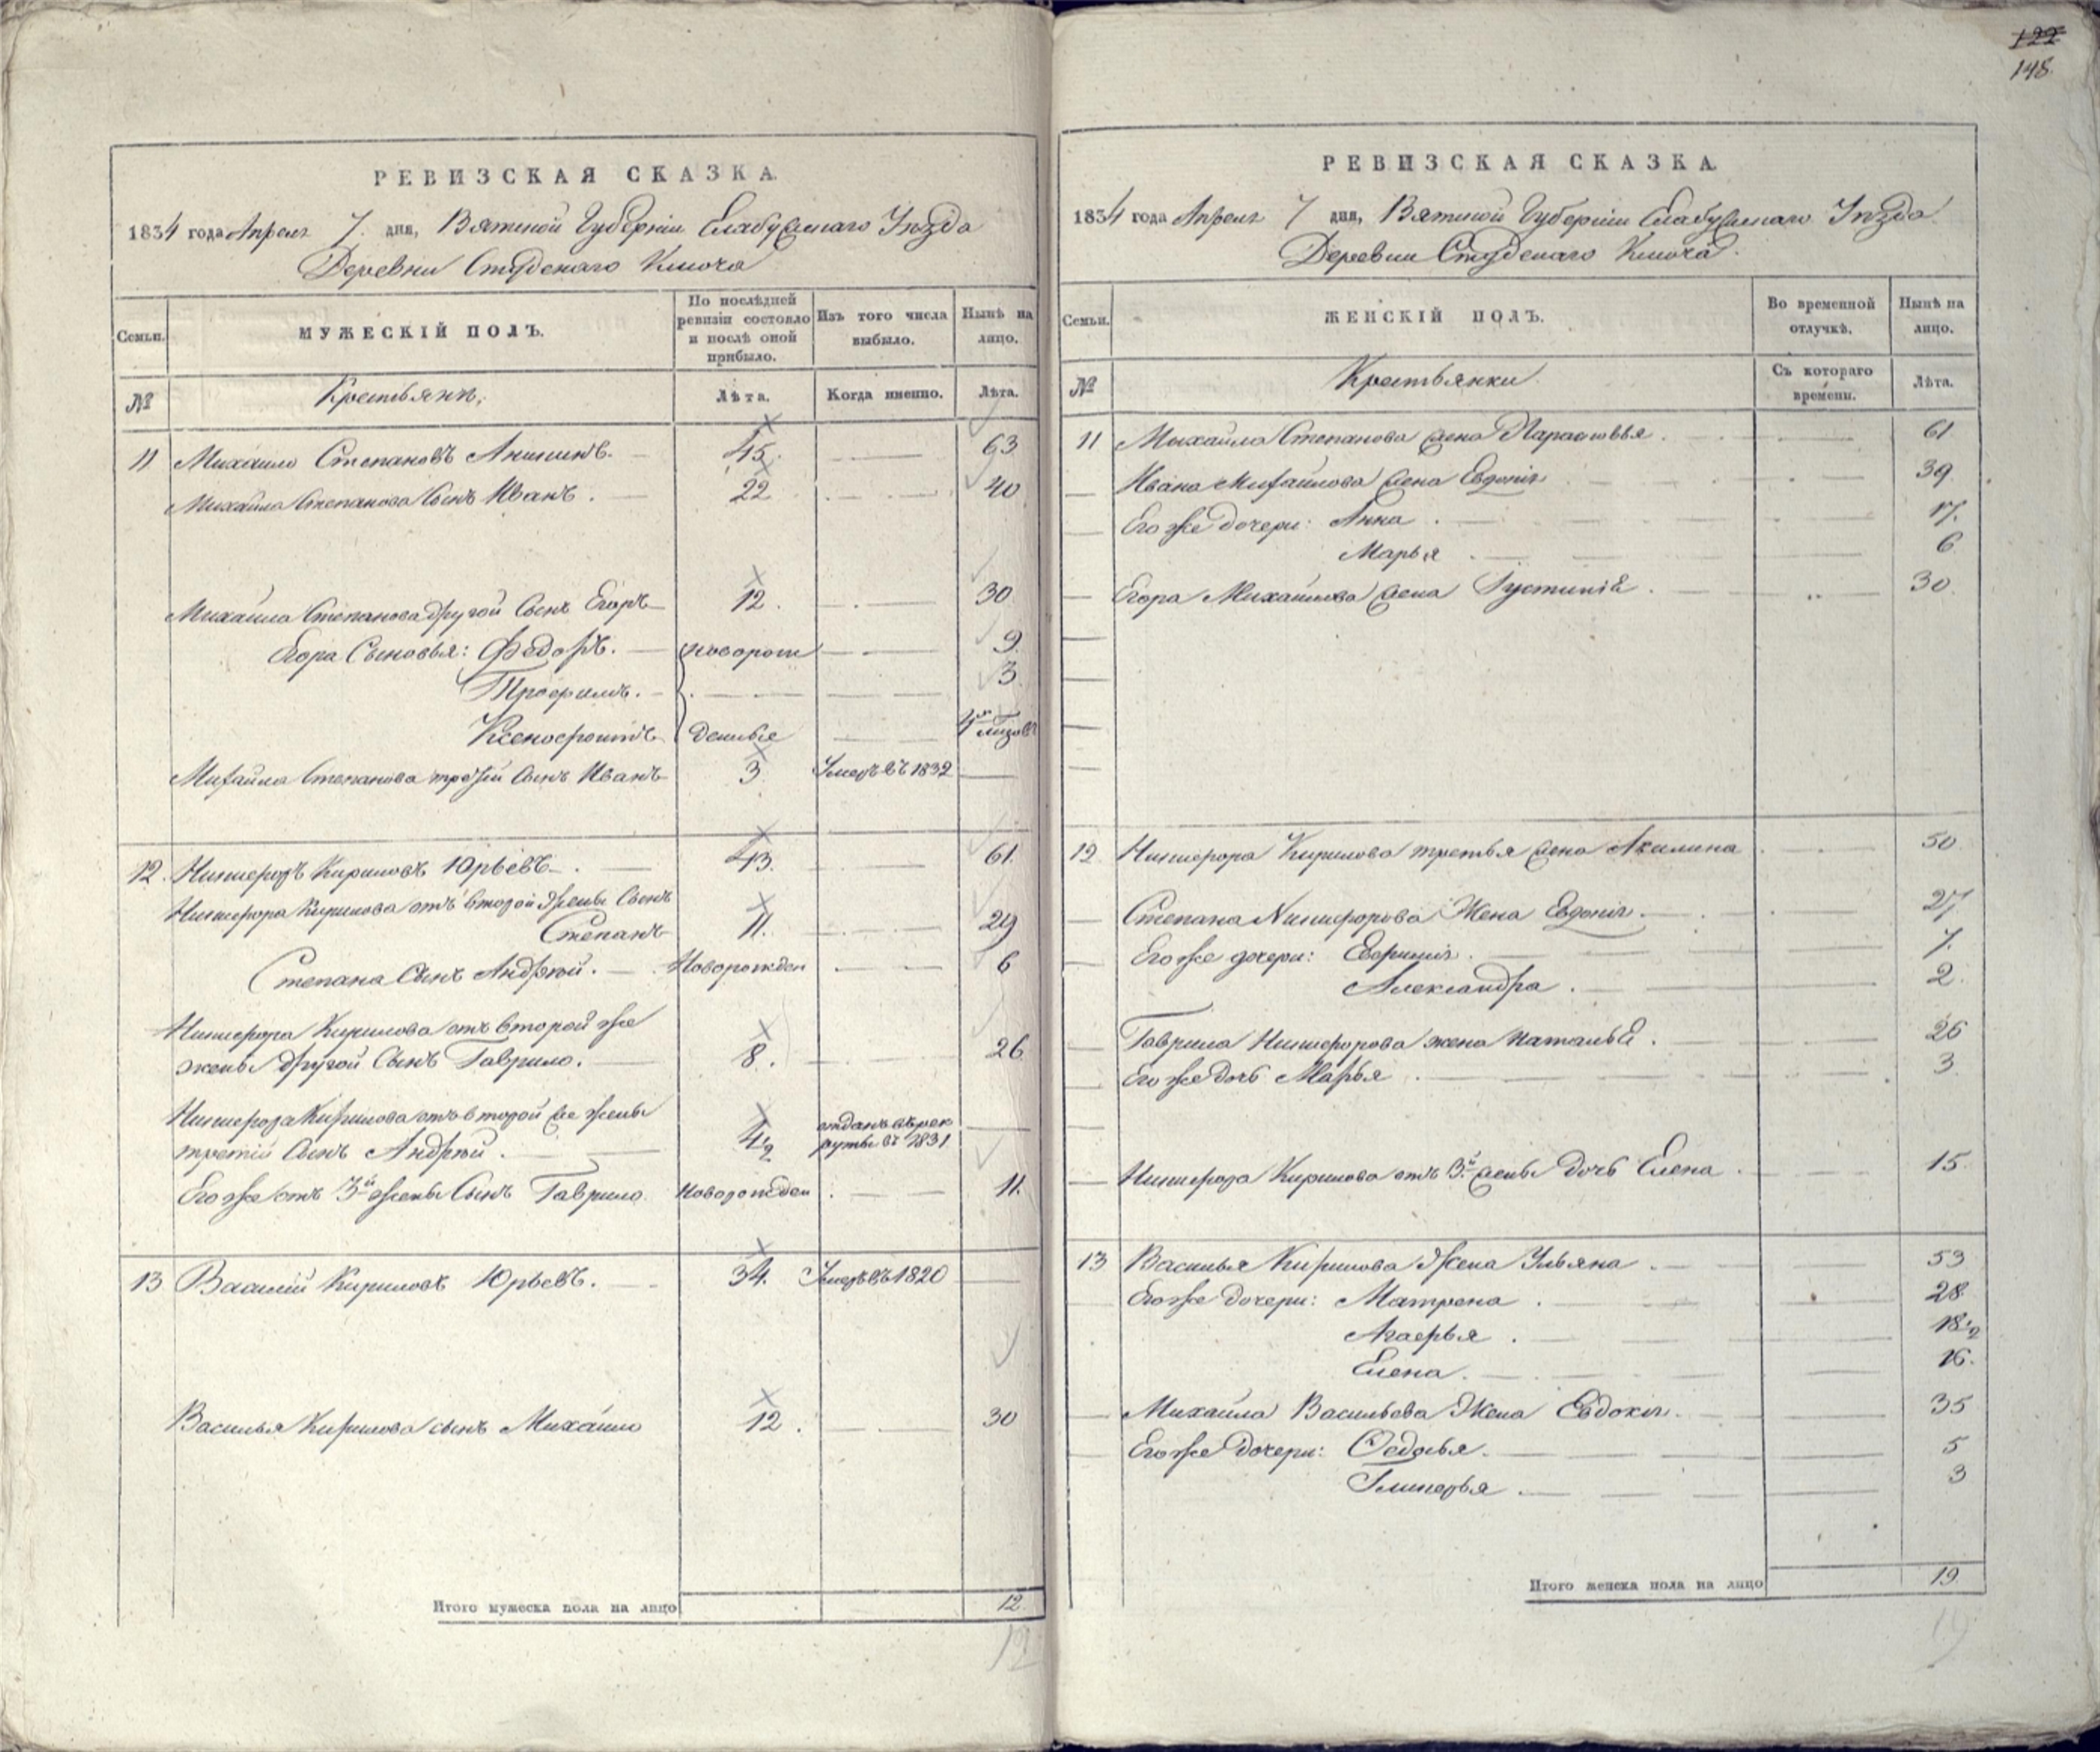 122
148.
РЕВИЗСКАЯ СКАЗКА.
1834 года Апреля 7. дня, Вятской Губерніи Елабужскаго Уѣзда
Деревни Студенаго Ключа
Семьи.
МУЖЕСКІЙ ПОЛЪ.
По послѣдней ревизіи состояло и послѣ оной прибыло.
Изъ того числа выбыло.
Нынѣ на лицо.
№
Крестьянъ,
Лѣта.
Когда именно.
Лѣта.
11 Михаило Степановъ Аникинъ. 45. 63
Михайла Степанова Сынъ Иванъ. 22 40
Михаила Степанова другой Сынъ Егоръ 12. 30
Егора Сыновья: Федоръ. новорож 9.
Трофимъ. 3.
Ксенофонтъ денные
Михайла Степанова третій Сынъ Иванъ 3 Умеръ въ 1832
12. Никифоръ Кириловъ Юрьевъ. 43. 61.
Никифора Кирилова отъ второй жены Сынъ
Степанъ 11. 29
Степана Сынъ Андрей. Новорожден 6
Никифора Кирилова отъ второй же
жены другой Сынъ Гаврило. 8. 26
Никифора Кирилова отъ второй же жены отданъ въ рек
третій Сынъ Андрей. 4½ руты въ 1831
Его же отъ 3й жены Сынъ Гаврило Новорожден 11.
13 Василій Кириловъ Юрьевъ. 34. Умеръ въ 1820
Василья Кирилова сынъ Михаило 12. 30
Итого мужеска пола на лицо 12.
12
РЕВИЗСКАЯ СКАЗКА.
1834 года Апреля 7 дня, Вятской Губерніи Елабужскаго Уѣзда
Деревни Студенаго Ключа.
Семьи.
ЖЕНСКІЙ ПОЛЪ.
Во временной отлучкѣ.
Нынѣ на лицо.
№
Крестьянки
Съ котораго времени.
Лѣта.
11 Михайла Степанова жена Парасковья. 61
Ивана Михайлова жена Евдокія 39.
Его же дочери: Анна. 17.
Марья 6
Егора Михайлова жена Густинія. 30.
12 Никифора Кирилова третья жена Акилина 50
Степана Никифорова Жена Евдокія. 27.
Его же дочери: 7.
Александра. 2.
Гаврила Никифорова жена Наталья. 26
Его же дочь Марья 3.
Никифора Кирилова отъ 3й жены дочь Елена. 15.
13 Василья Кирилова Жена Ульяна. 53
Его же дочери: Матрена. 28.
Агафья. 18½
Елена. 16.
Михаила Васильева Жена Евдокія. 35
Его же дочери: Федосья. 5
Гликерья. 3
Итого женска пола на лицо 19
19